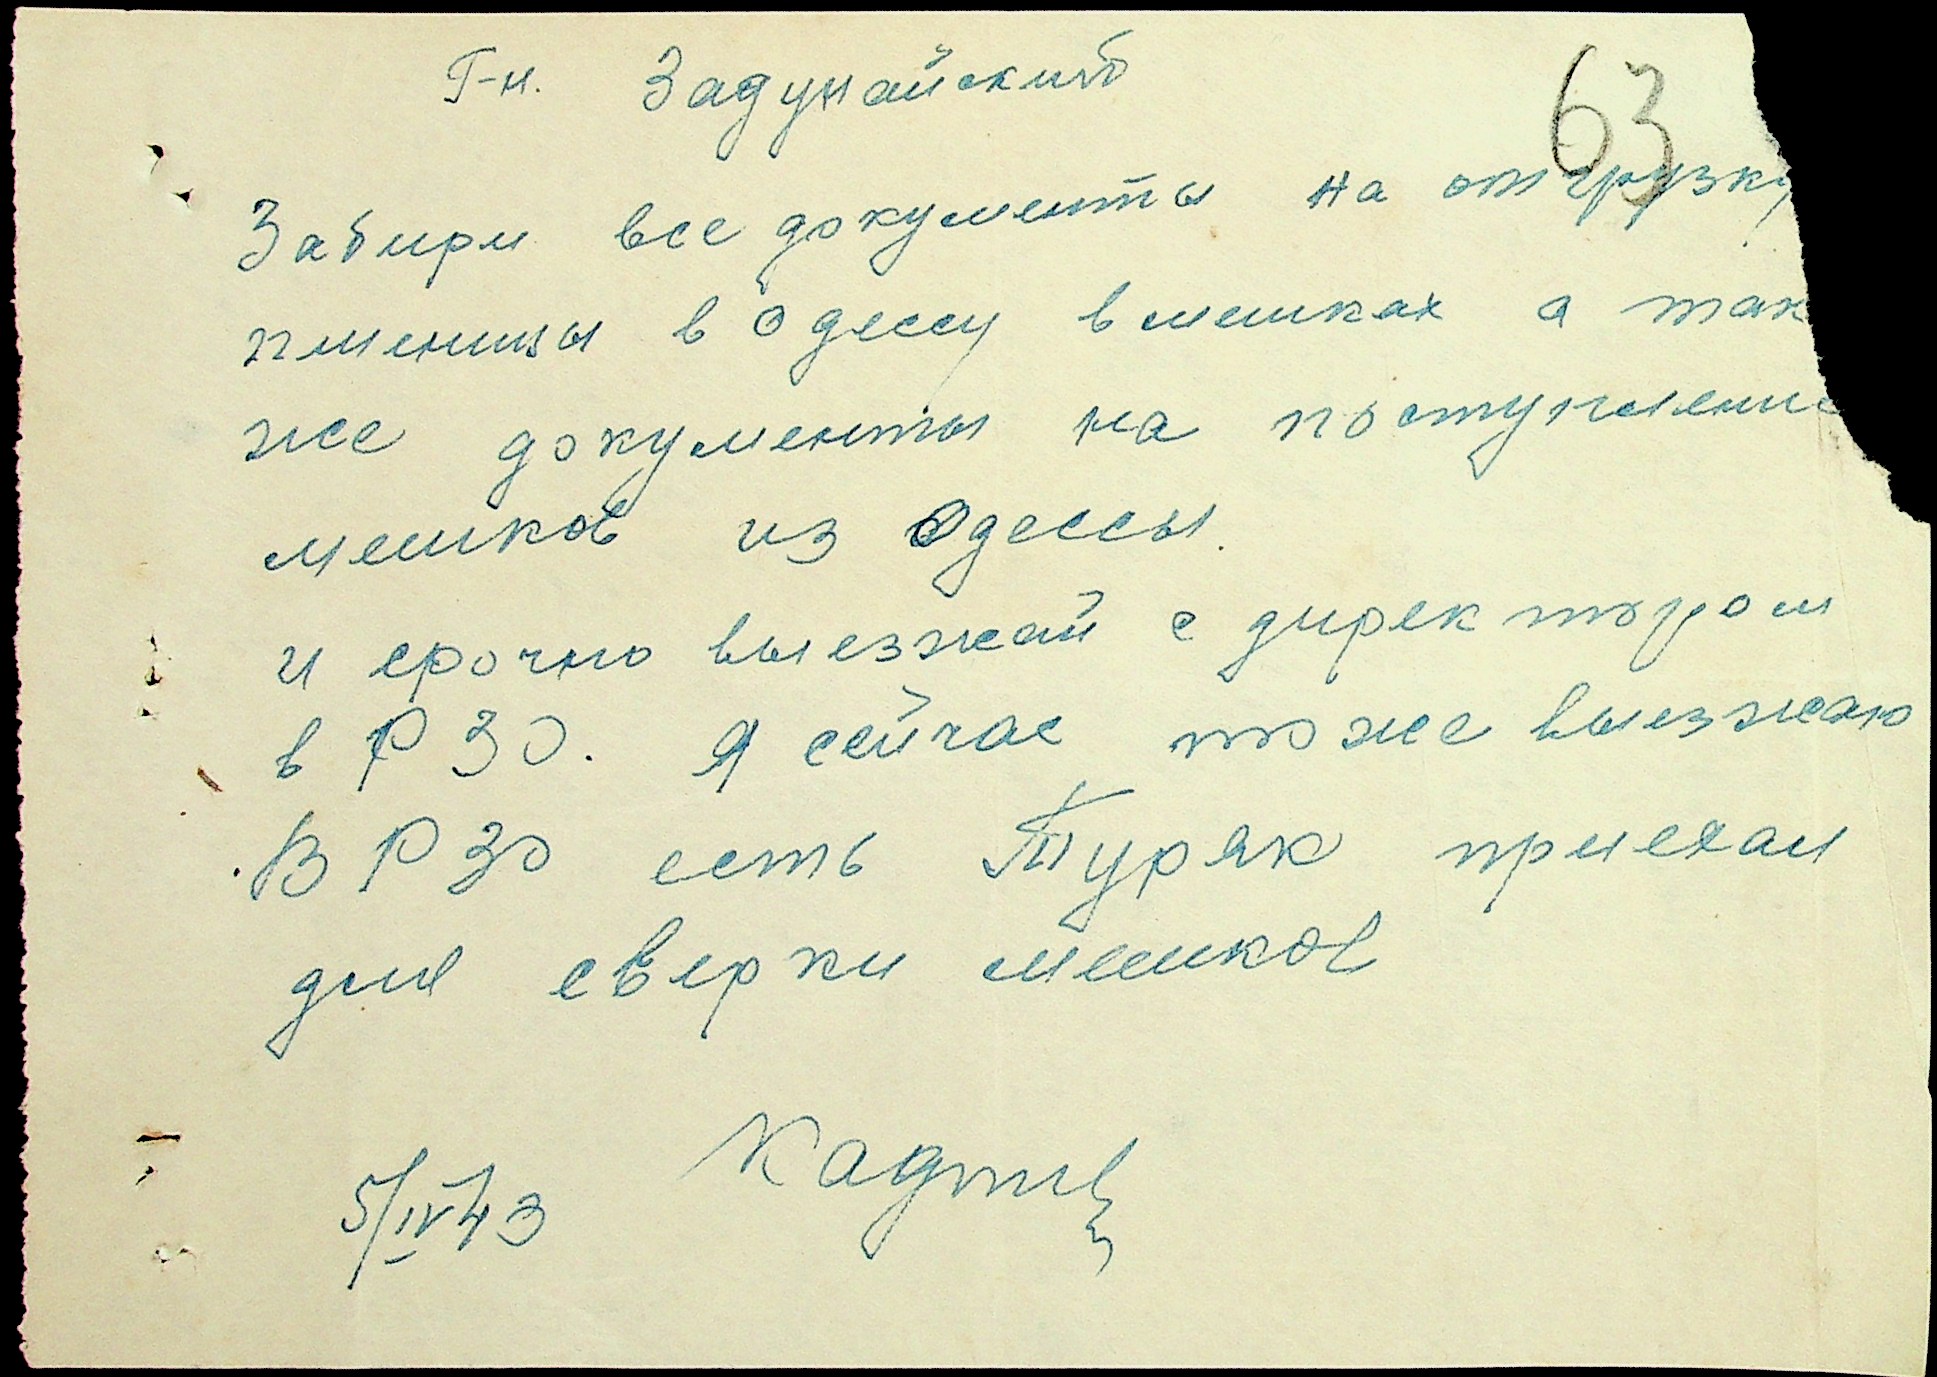 63
Г-н. Задунайский
Забири все документы на отгрузку
пшеницы в Одессу в мешках а так
же документы на поступление
мешков из Одессы.
и срочно выезжай с директором
в РЗО. Я сейчас тоже выезжаю
В РЗО есть Туряк приехал
для сверки мешков
5/IV 43